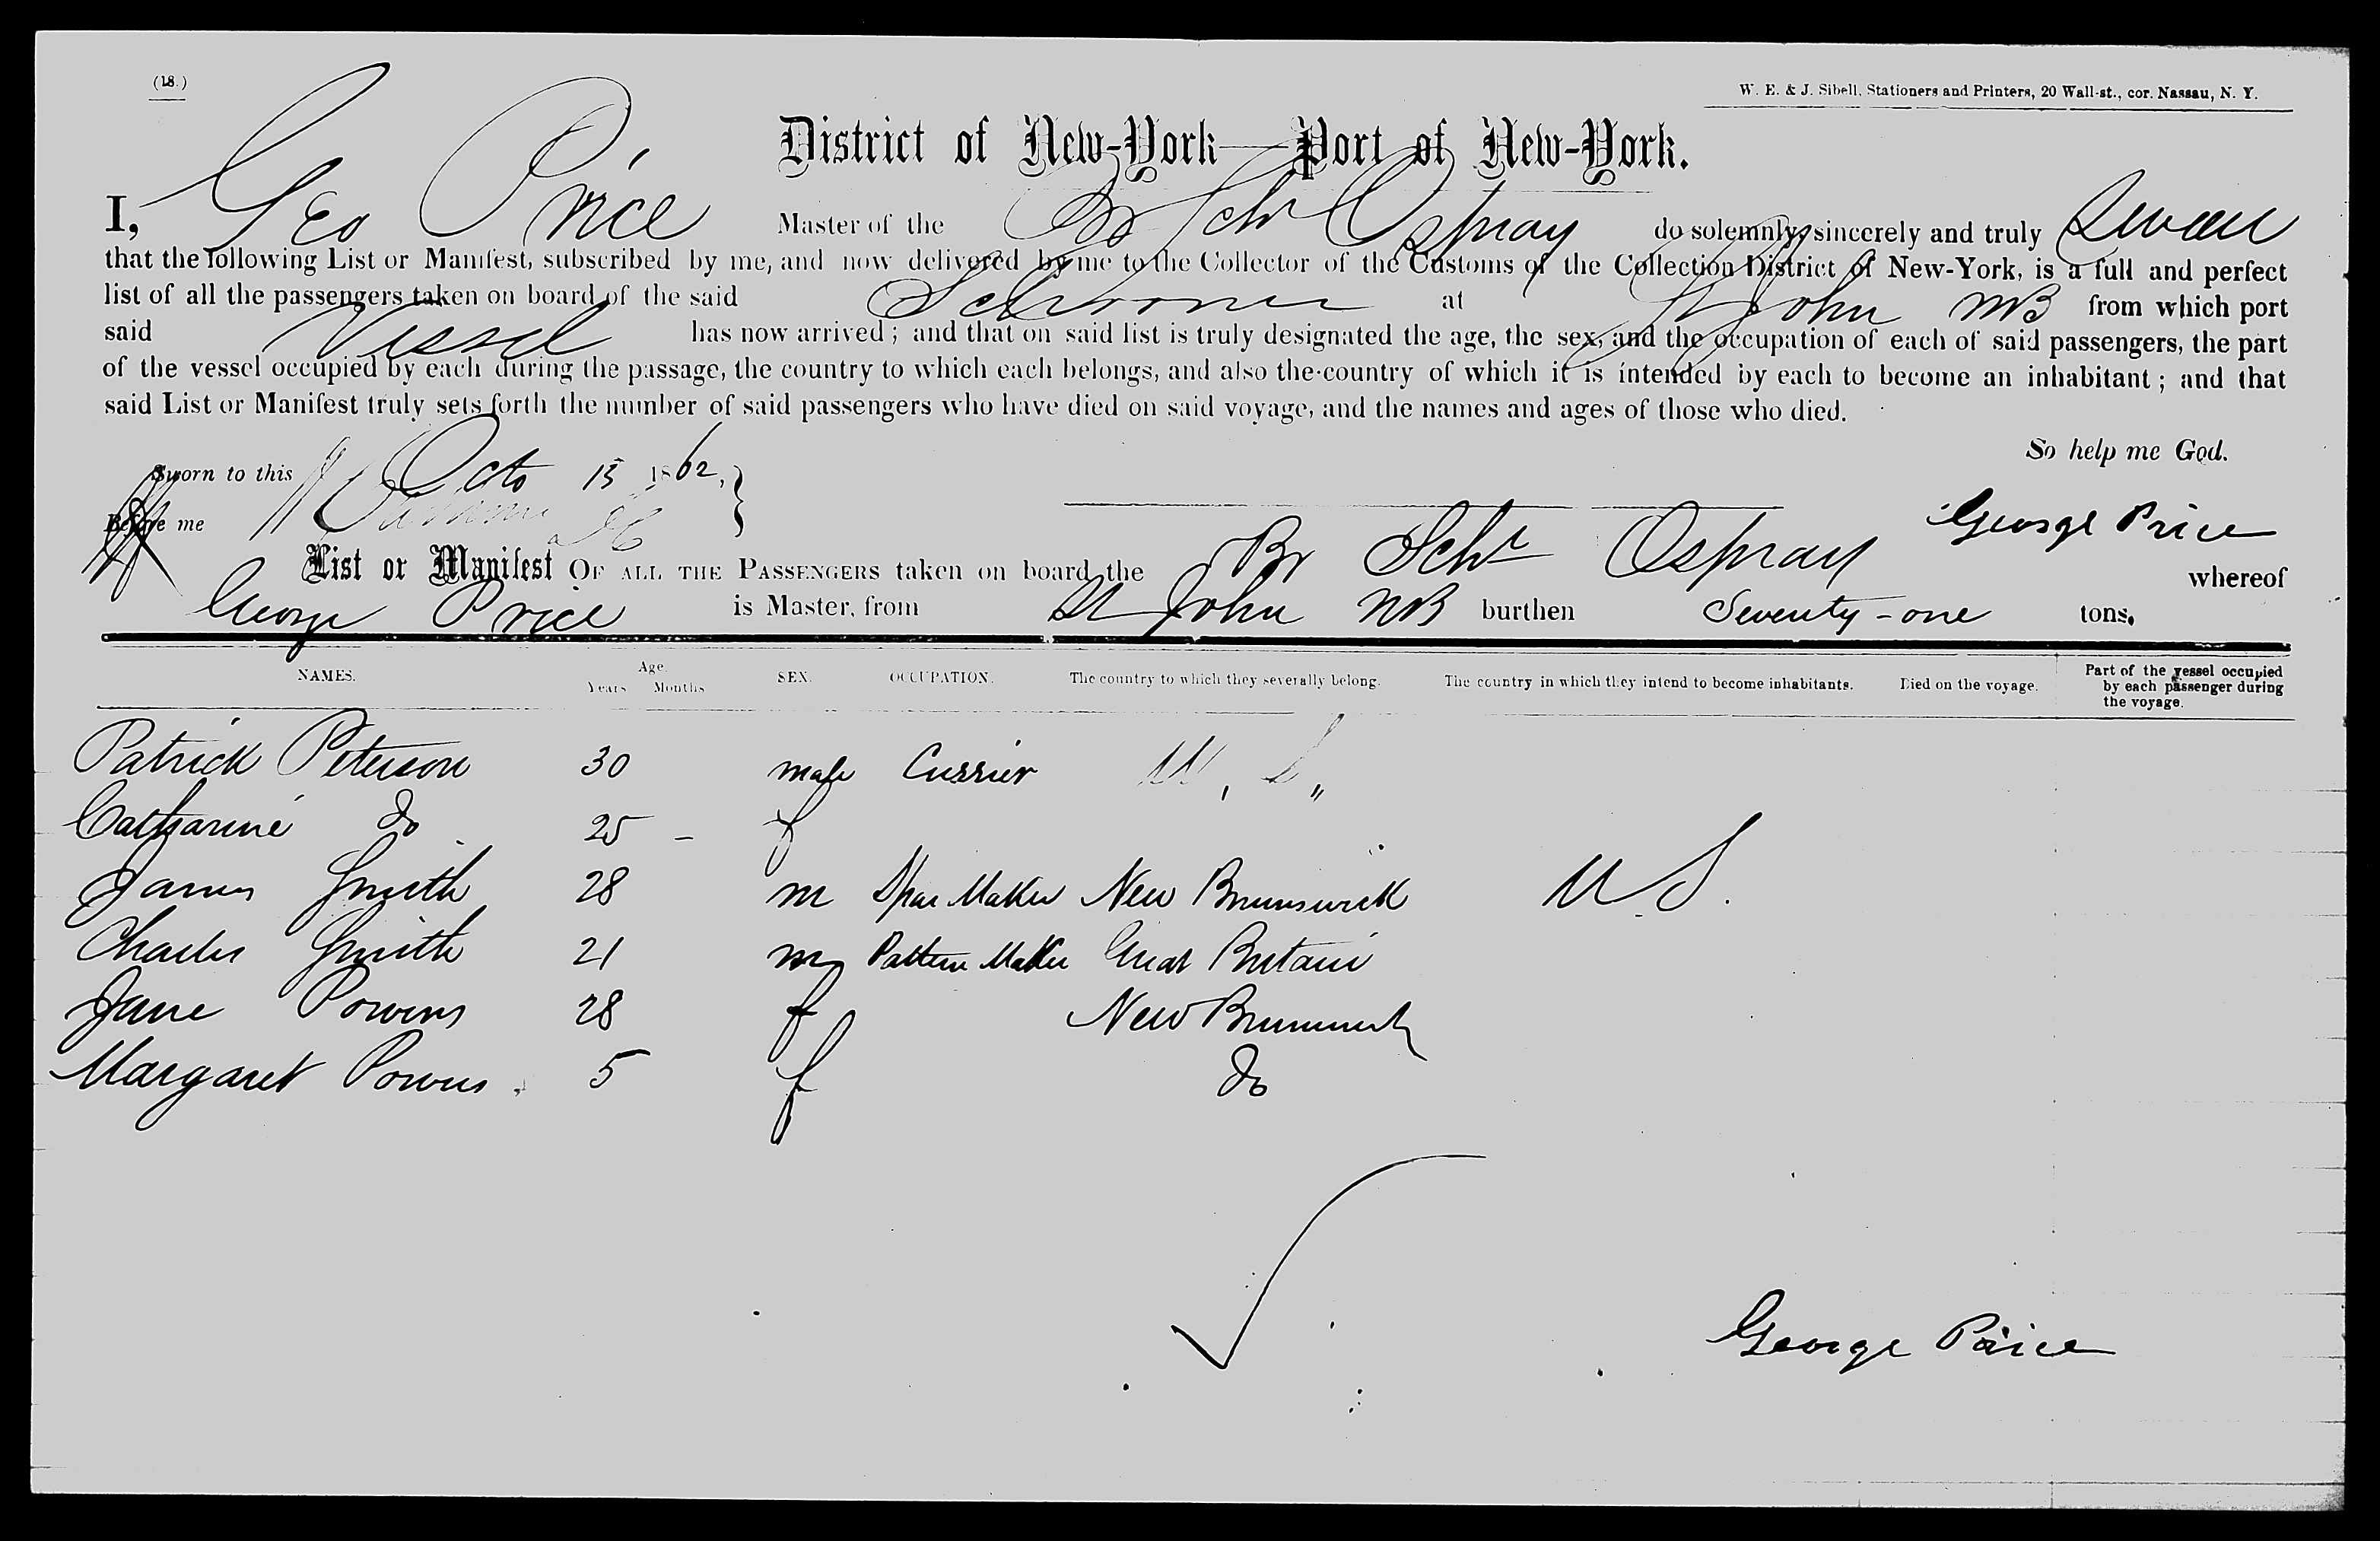 (18.)
W. E. & J. Sibell, Stationers and Printers, 20 Wall-st., cor. Nassau, N. Y.
District of New-York—Port of New-York.
I, Geo Price Master of the Br Schr Ospray do solemnly, sincerely and truly Swear
that the following List or Manifest, subscribed by me, and now delivered by me to the Collector of the Customs of the Collection District of New-York, is a full and perfect
list of all the passengers taken on board of the said Schooner at St John NB from which port
said Vessel has now arrived; and that on said list is truly designated the age, the sex, and the occupation of each of said passengers, the part
of the vessel occupied by each during the passage, the country to which each belongs, and also the country of which it is intended by each to become an inhabitant; and that
said List or Manifest truly sets forth the number of said passengers who have died on said voyage, and the names and ages of those who died.
So help me God.
Sworn to this Octo 15 1862,
Before me
George Price
List or Manifest OF ALL THE PASSENGERS taken on board the Br Schr Ospray whereof
George Price is Master, from St John NB burthen Seventy-one tons.
NAMES. Age. Years Months SEX. OCCUPATION. The country to which they severally belong. The country in which they intend to become inhabitants. Died on the voyage. Part of the vessel occupied by each passenger during the voyage.
Patrick Peterson 30 male Currier U, S,,
Catharine do 25 - f
James Smith 28 m Spar Maker New Brunswick U S.
Charles Smith 21 m Pattern Maker Great Britain
Jane Powers 28 f New Brunswick
Margaret Powers 5 f do
George Price